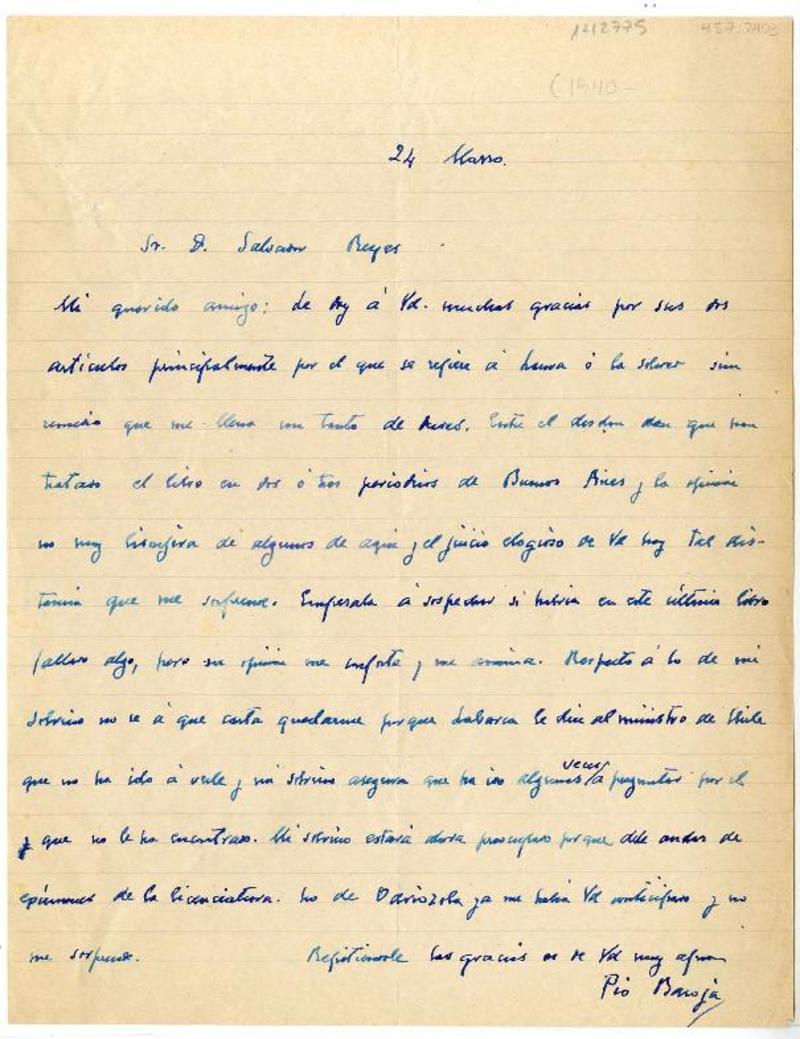 1212775 457.7403
(1940-
24 Marzo.
Sr. D. Salvador Reyes
Mi querido amigo: le doy á Vd. muchas gracias por sus dos
artículos principalmente por el que se refiere á Laura ó la soledad sin
remedio que me llena un tanto de dudas. Entre el desden con que han
tratado el libro en dos ó tres periódicos de Buenos Aires y la opinión
no muy lisonjera de algunos de aquí y el juicio elogioso de Vd hay tal dis-
tancia que me sorprende. Empezaba á sospechar si habría en este último libro
fallado algo, pero su opinión me conforta y me anima. Respecto á lo de mi
sobrino no se á que carta quedarme porque Labarca le dice al ministro de Chile
que no ha ido á verle y mi sobrino asegura que ha ido algunas veces á preguntar por el
y que no le ha encontrado. Mi sobrino estará ahora preocupado porque debe andar de
exámenes de la licenciatura. Lo de ya me había Vd anticipado y no
me sorprende. Repitiendole las gracias es de Vd muy afmo
Pío Baroja